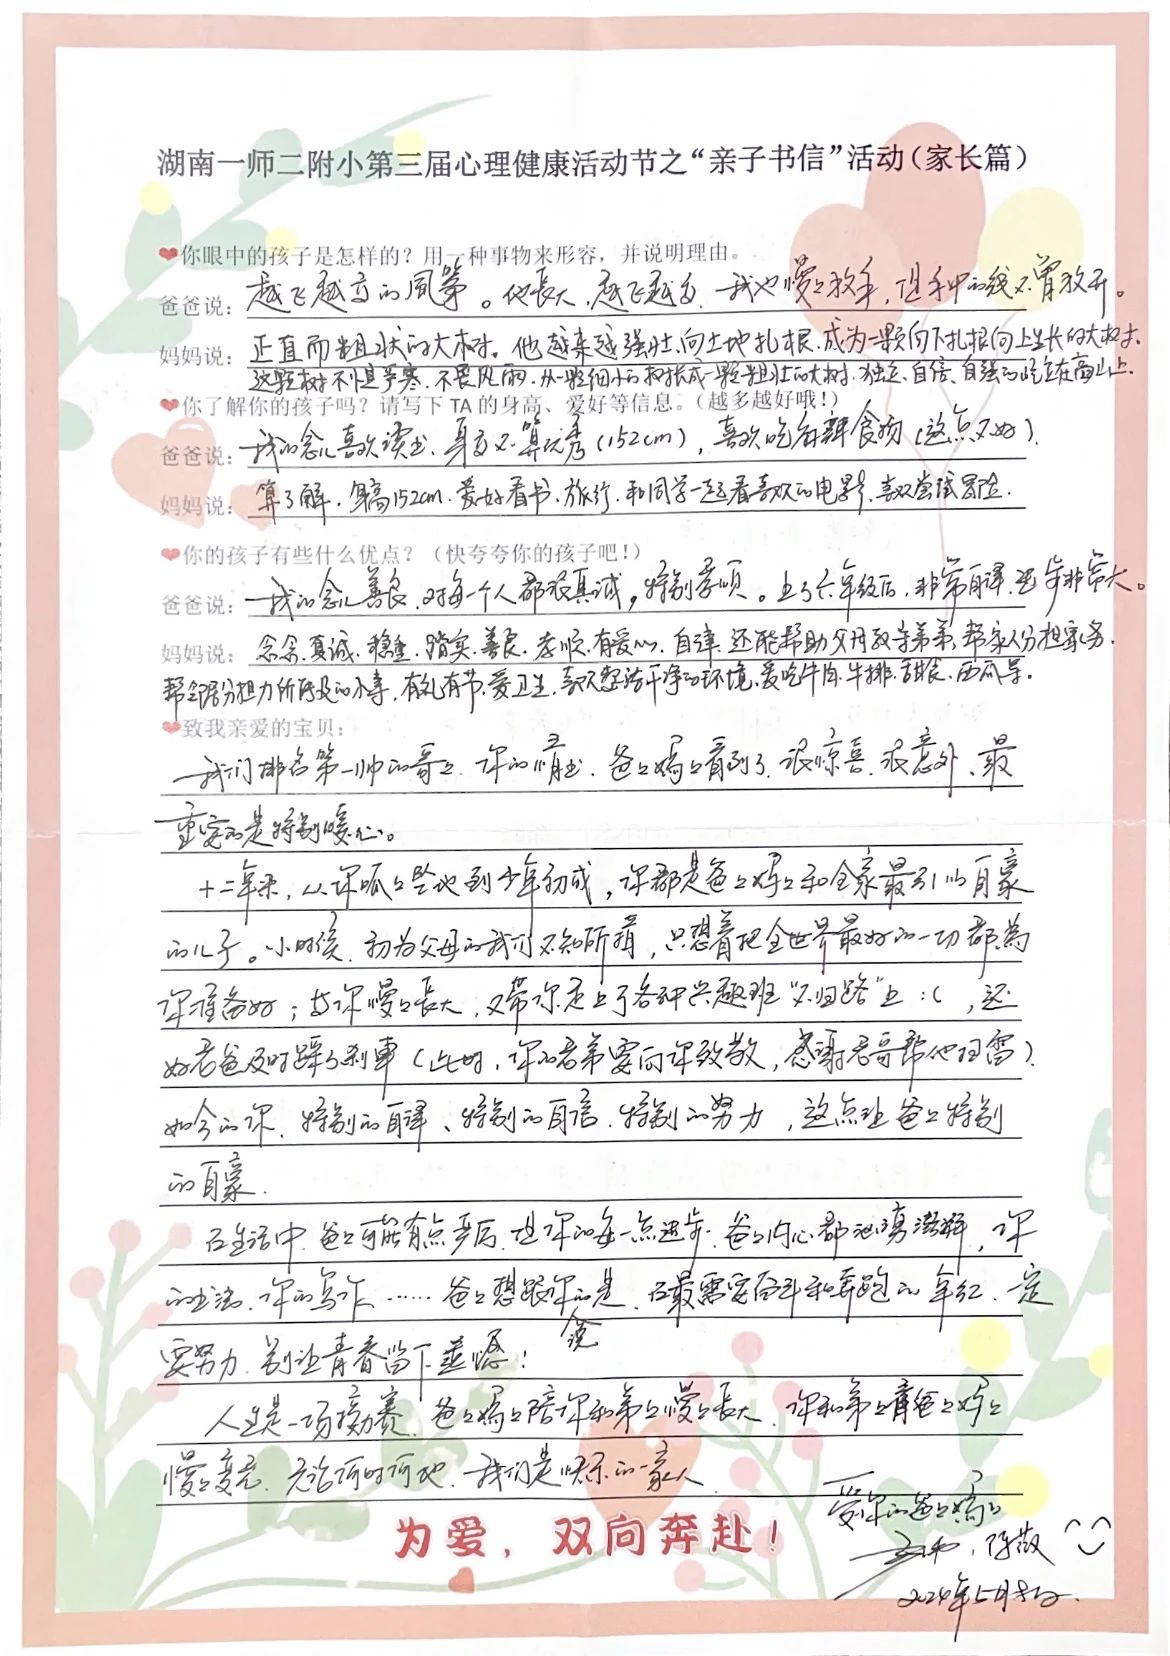 湖南一师二附小第三届心理健康活动节之“亲子书信”活动（家长篇）
❤你眼中的孩子是怎样的？用一种事物来形容，并说明理由。
爸爸说：越飞越高的风筝。他長大，越飞越高，我也慢慢放手，但手中的线不曾放开。
妈妈说：正直而粗状的大树。他越来越强壮，向土地扎根，成为一颗向下扎根向上生长的大树。
这颗树不惧严寒、不畏风雨，从一颗细小的树长成一颗粗壮的大树，独立、自信、自强的屹立在高山上。
❤你了解你的孩子吗？请写下 TA 的身高、爱好等信息。（越多越好哦！）
爸爸说：我的念儿喜欢读书，身高不算优秀（152cm），喜欢吃香辣食物（这点不好）。
妈妈说：算了解，身高152cm，爱好看书、旅行、和同学一起看喜欢的电影，喜欢尝试冒险。
❤你的孩子有些什么优点？（快夸夸你的孩子吧！）
爸爸说：我的念儿善良，对每一个人都很真诚，特别孝顺。上了六年级后，非常自律，进步非常大。
妈妈说：念念真诚、稳重、踏实、善良、孝顺、有爱心、自律，还能帮助父母教导弟弟，帮家人分担家务，
帮分担力所能及的小事，有礼有节，爱卫生，喜欢整洁干净的环境，爱吃牛肉、牛排、西瓜等。
❤致我亲爱的宝贝：
我们排名第一帅的哥哥，你的情书，爸爸妈妈看到了，很惊喜、很意外、最
重要的是特别暖心。
十二年来，从你呱呱坠地到少年初成，你都是爸爸妈妈和全家最引以自豪
的儿子。小时候，初为父母的我们不知所措，只想着把全世界最好的一切都為
你准备好；与你慢慢長大，又带你走上了各种兴趣班“不归路”上：（，还
好老爸及时踩了刹車（此时，你的老弟要向你致敬，感謝老哥帮他扫雷）。
如今的你，特别的自律、特别的自信、特别的努力，这点让爸爸特别
的自豪。
在生活中，爸爸可能有点严厉，但你的每一点进步，爸爸内心都汹湧澎湃，你
的书法、你的写作……爸爸想跟你说的是，在最需要奋斗和奔跑的年纪，一定
要努力，别让青春留下遗憾！
人生是一场接力赛，爸爸妈妈陪你和弟弟慢慢長大，你和弟弟看爸爸妈妈
慢慢变老，无论何时何地，我们是快乐的一家人。
为爱，双向奔赴！
爱你的爸爸媽媽
2024年5月